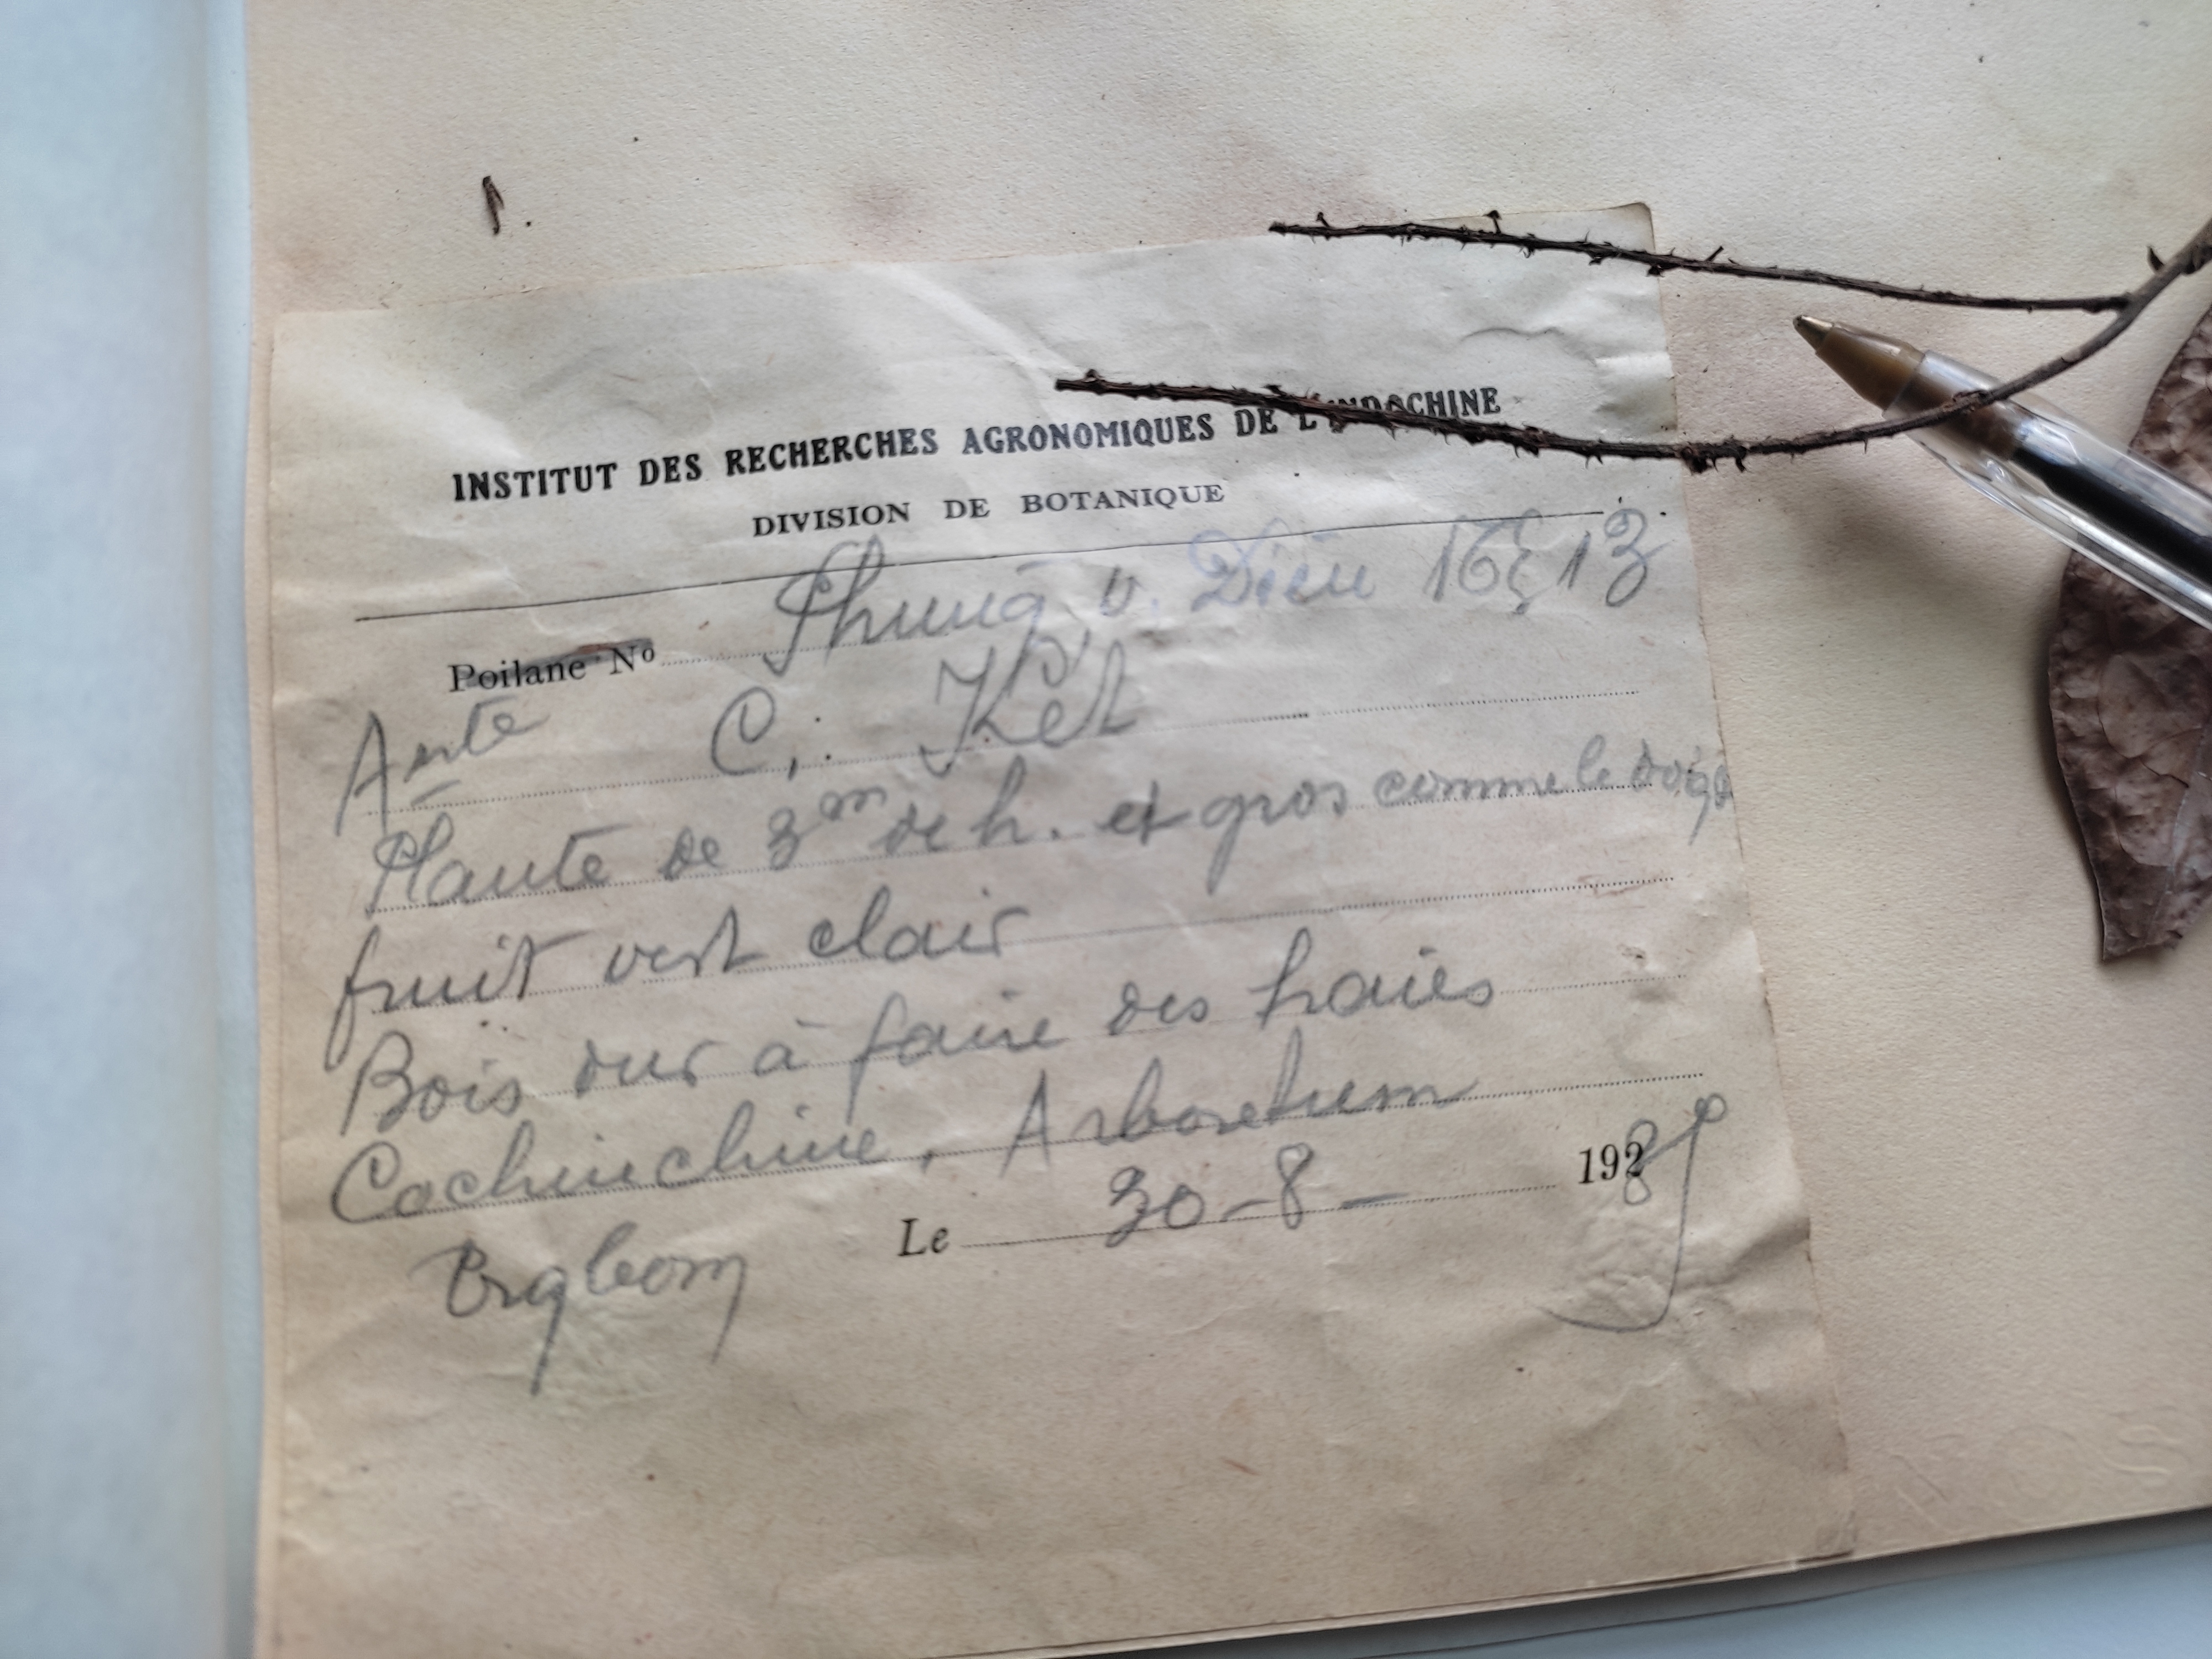 1.
INSTITUT DES RECHERCHES AGRONOMIQUES DE L'INDOCHINE
DIVISION DE BOTANIQUE
Poilane No Phung v. Diêu 13
C. Két
Plante de 3m de h. et gros comme le doigt
fruit vert clair
Bois dur à faire des haies
Cochinchine, Arboretum
Le 30-8- 1928